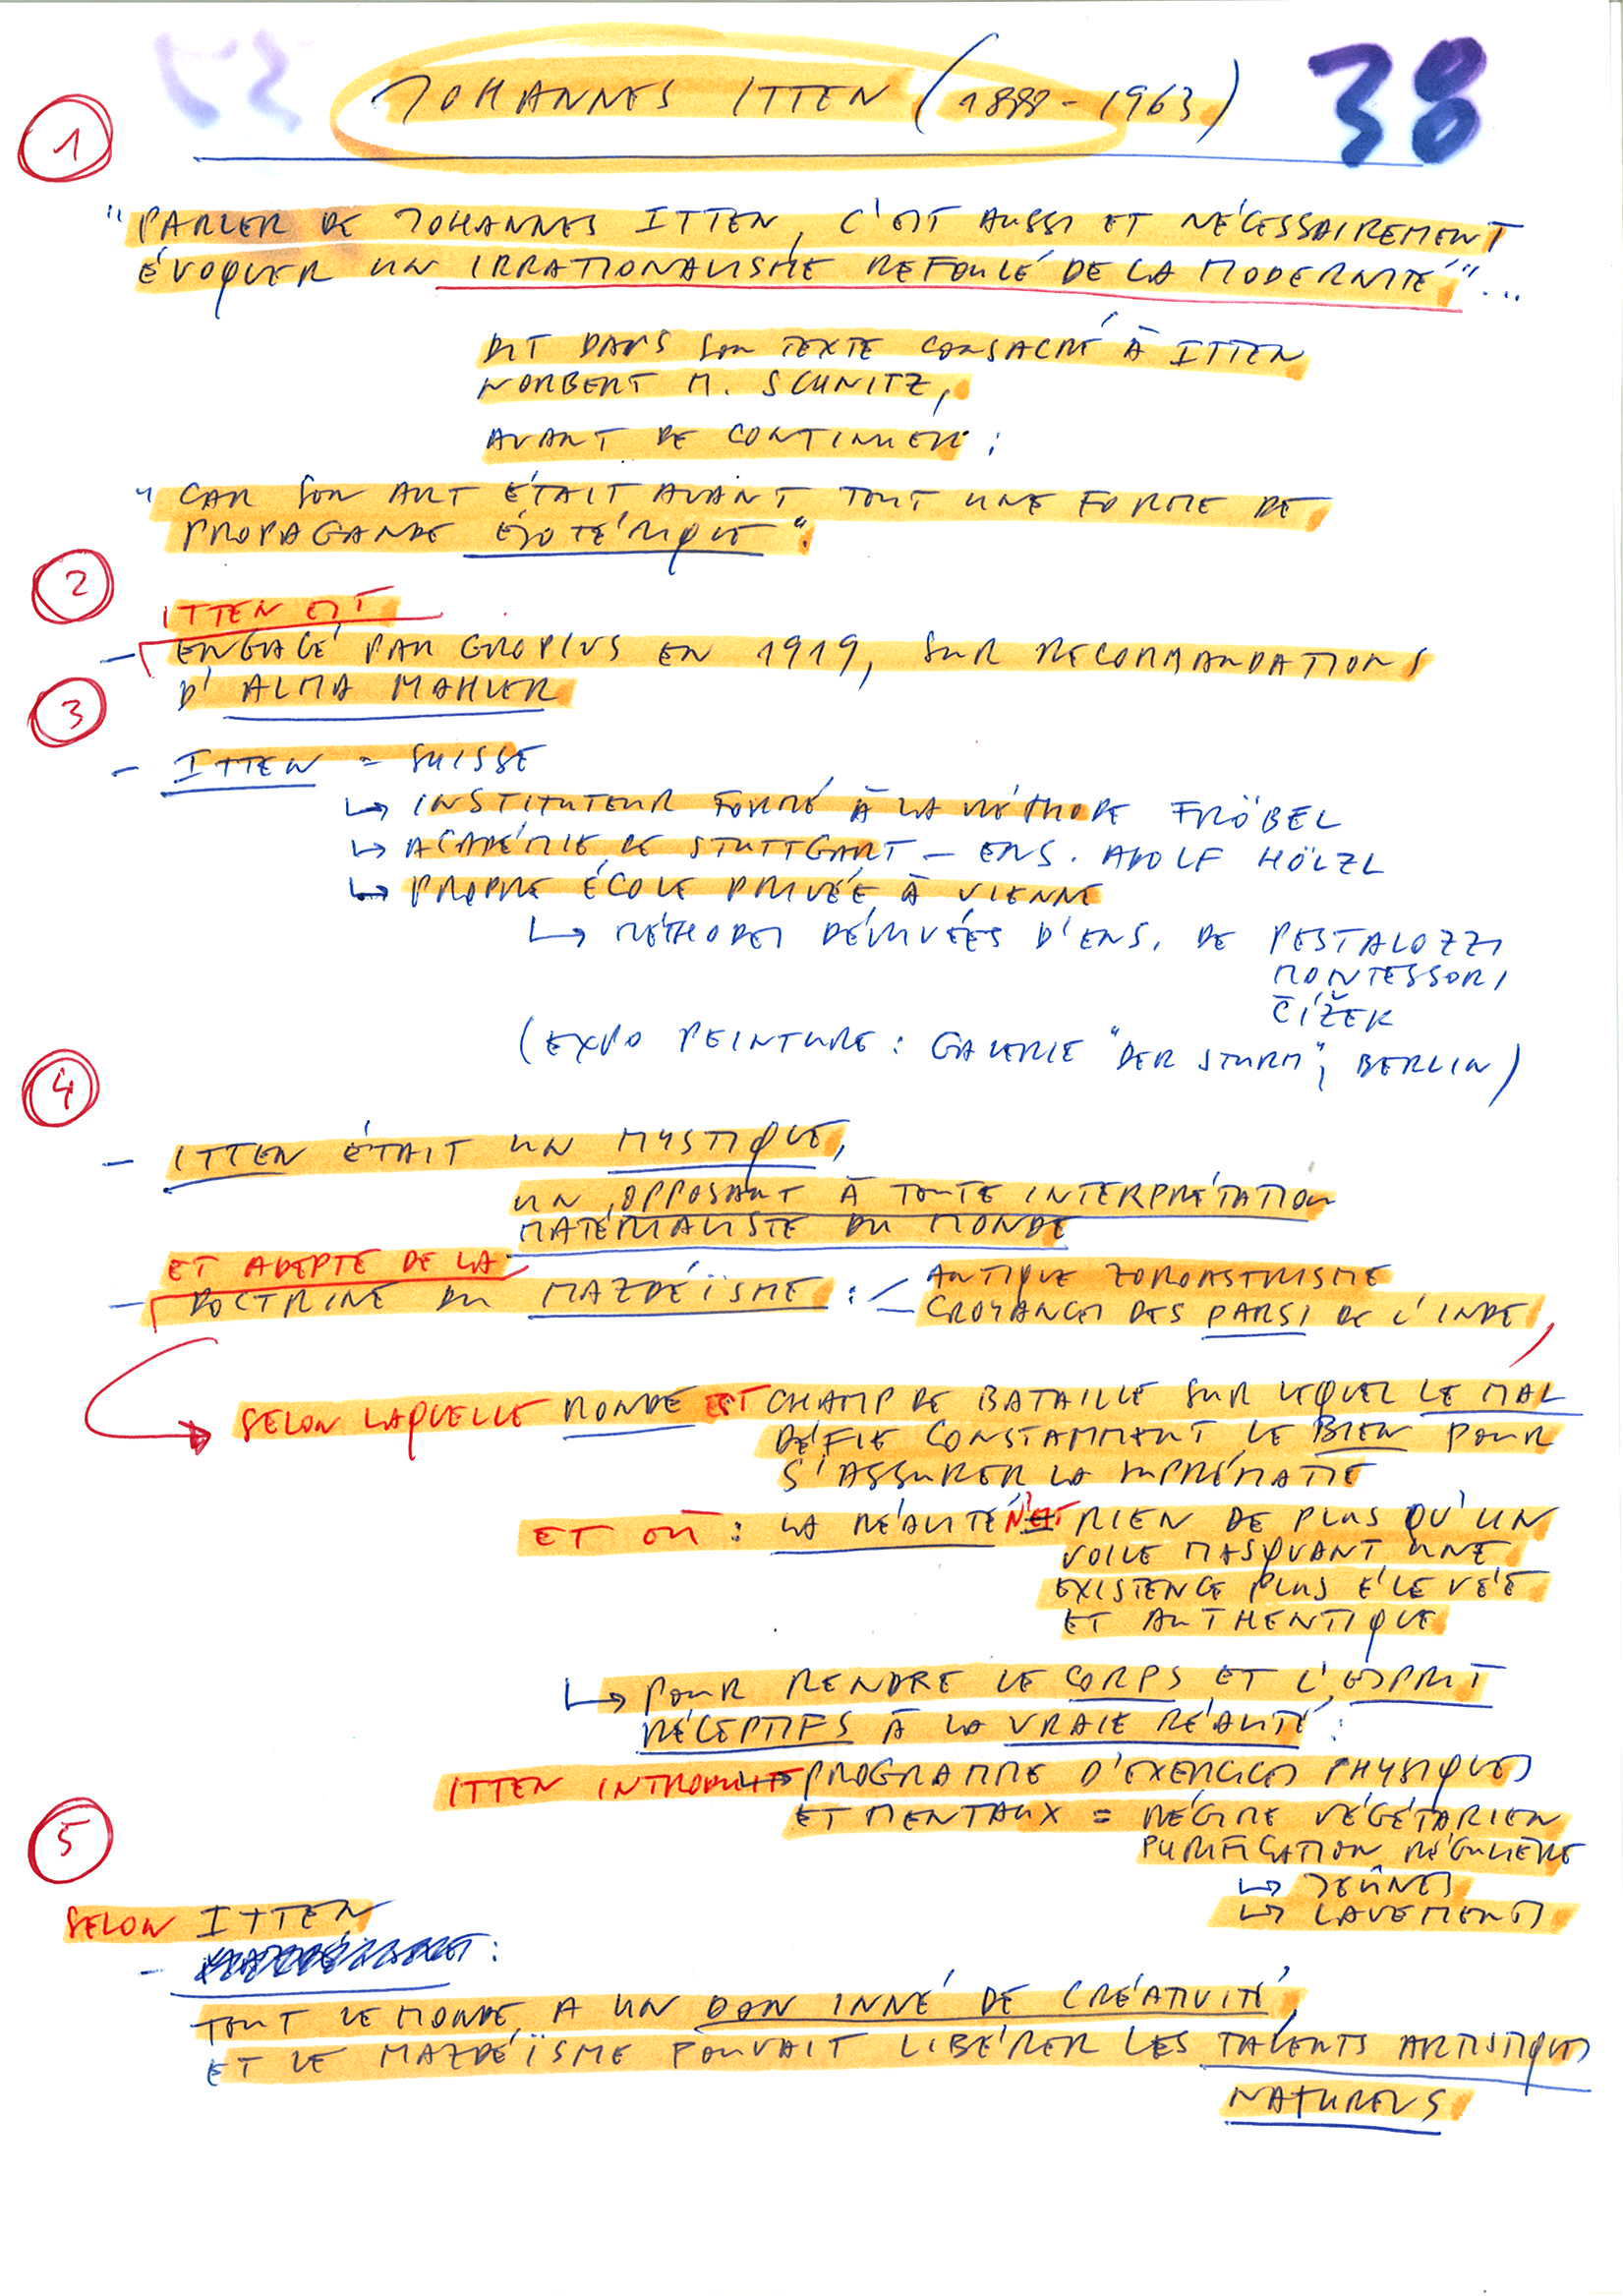 38
JOHANNES ITTEN (1888-1963)
1
"PARLER DE JOHANNES ITTEN, C'EST AUSSI ET NÉCESSAIREMENT
ÉVOQUER UN IRRATIONALISME REFOULÉ DE LA MODERNITÉ"...
DIT DANS SON TEXTE CONSACRÉ À ITTEN
NORBERT M. SCHMITZ,
AVANT DE CONTINUER :
"CAR SON ART ÉTAIT AVANT TOUT UNE FORME DE
PROPAGANDE ÉSOTÉRIQUE".
2
ITTEN EST
- ENGAGÉ PAR GROPIUS EN 1919, SUR RECOMMANDATIONS
D'ALMA MAHLER
3
- ITTEN = SUISSE
↳ INSTITUTEUR FORMÉ À LA MÉTHODE FRÖBEL
↳ ACADÉMIE DE STUTTGART - ENS. ADOLF HÖLZL
↳ PROPRE ÉCOLE PRIVÉE À VIENNE
↳ MÉTHODES DÉRIVÉES D'ENS. DE PESTALOZZI
MONTESSORI
ČÍŽEK
(EXPO PEINTURE : GALERIE "DER STURM", BERLIN)
4
- ITTEN ÉTAIT UN MYSTIQUE,
UN OPPOSANT À TOUTE INTERPRÉTATION
MATÉRIALISTE DU MONDE
ET ADEPTE DE LA
- DOCTRINE DU MAZDÉÏSME : - ANTIQUE ZOROASTRISME
- CROYANCES DES PARSI DE L'INDE,
SELON LAQUELLE MONDE EST CHAMP DE BATAILLE SUR LEQUEL LE MAL
DÉFIE CONSTAMMENT LE BIEN POUR
S'ASSURER LA SUPRÉMATIE
ET OÙ : LA RÉALITÉ N'EST RIEN DE PLUS QU'UN
VOILE MASQUANT UNE
EXISTENCE PLUS ÉLEVÉE
ET AUTHENTIQUE
↳ POUR RENDRE LE CORPS ET L'ESPRIT
RÉCEPTIFS À LA VRAIE RÉALITÉ :
ITTEN INTRODUIT PROGRAMME D'EXERCICES PHYSIQUES
ET MENTAUX = RÉGIME VÉGÉTARIEN
PURIFICATION RÉGULIÈRE
↳ JEÛNES
↳ LAVEMENTS
5
SELON ITTEN
- :
TOUT LE MONDE A UN DON INNÉ DE CRÉATIVITÉ,
ET LE MAZDÉÏSME POUVAIT LIBÉRER LES TALENTS ARTISTIQUES
NATURELS